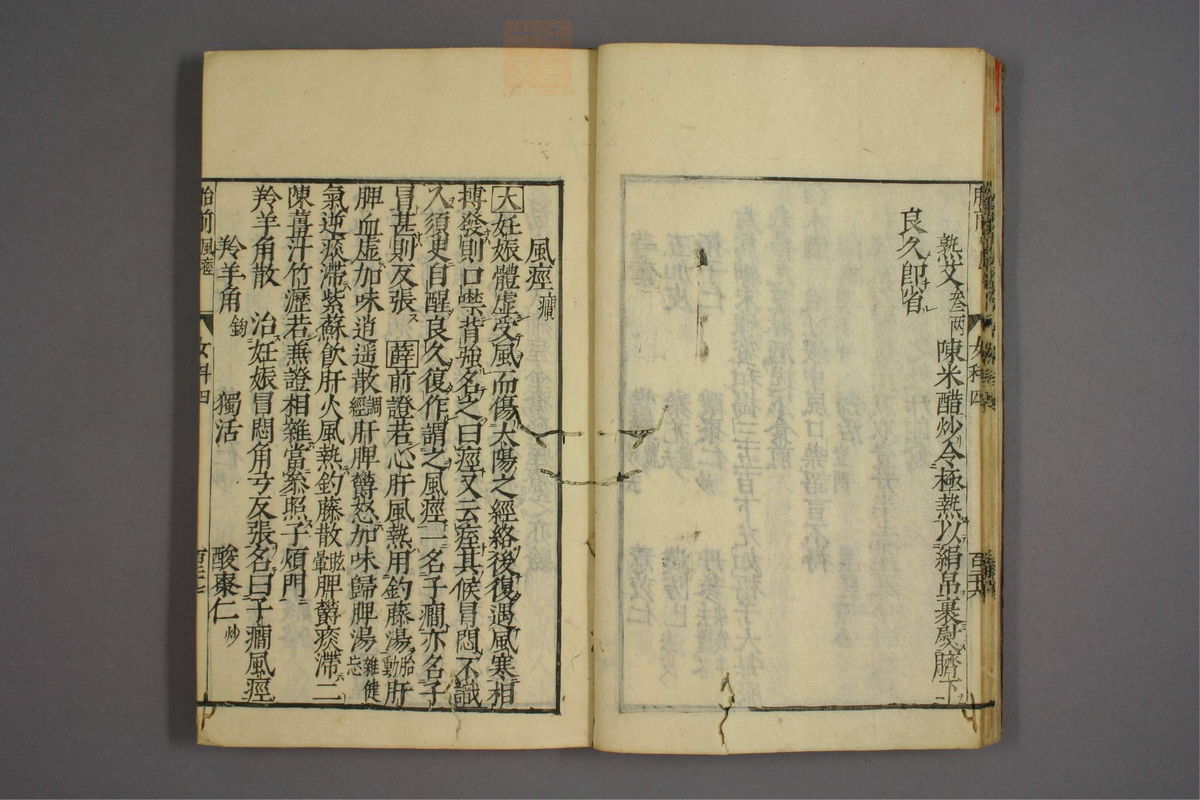 熟艾 叁兩 陳米醋炒令極熱以絹帛裹熨臍下
良久即省
女科四
風痙 癇
大 妊娠體虛受風而傷太陽之經絡後復遇風寒相
搏發則口噤背強名之曰痙又云痓其候冒悶不識
人須臾自醒良久復作謂之風痙一名子癇亦名子
冒甚則反張 薛 前證若心肝風熱用釣藤湯 胎動 肝
脾血虛加味逍遥散 調經 肝脾鬱怒加味歸脾湯 雜健忘
氣逆痰滯紫蘇飲肝火風熱釣藤散 眩暈 脾鬱痰滯二
陳薑汁竹瀝若兼證相雜當叅照子煩門
羚羊角散 治妊娠冒悶角弓反張名曰子癇風痙
羚羊角 鎊 獨活 酸棗仁 炒
胎前 風痙 女科四